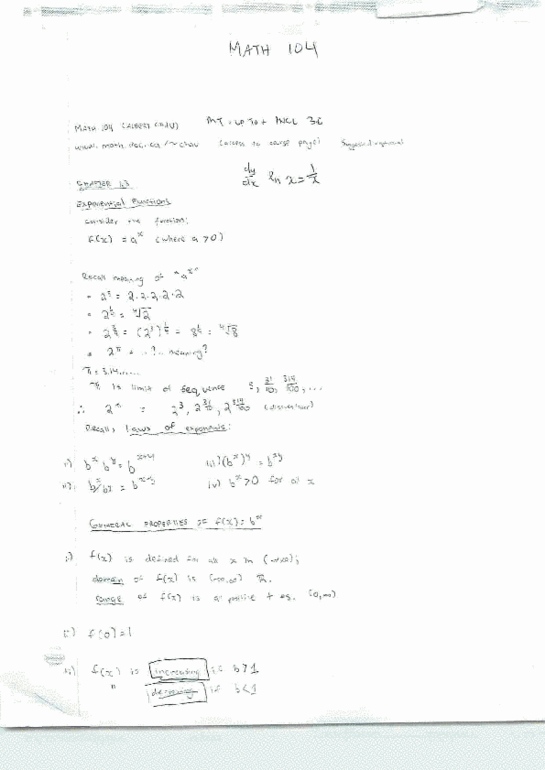 MATH 104
MATH 104 (ALBERT CHAU) MT - UP TO + INCL 3.6
www.math.ubc.ca/~chau (access to course page)
dy/dx ln x = 1/x
CHAPTER 1.3
Exponential Functions
consider the function:
f(x) = a^x (where a > 0)
Recall meaning of "a^x"
2^5 = 2·2·2·2·2
2^{1/4} = ∜2
2^{3/4} = (2^3)^{1/4} = 8^{1/4} = ∜8
2^π = ..?.. meaning?
π = 3.14......
π is limit of sequence 3, 31/10, 314/100, ...
∴ 2^π = 2^3, 2^{31/10}, 2^{314/100}
Recall, laws of exponents:
i) b^x b^y = b^{x+y} iii) (b^x)^y = b^{xy}
ii) b^x/b^y = b^{x-y} iv) b^x > 0 for all x
GENERAL PROPERTIES OF f(x) = b^x
i) f(x) is defined for all x in (-∞,∞);
domain of f(x) is (-∞,∞) ℝ.
range of f(x) is all positive (0,∞)
ii) f(0) = 1
iii) f(x) is increasing if b > 1
" decreasing if b < 1